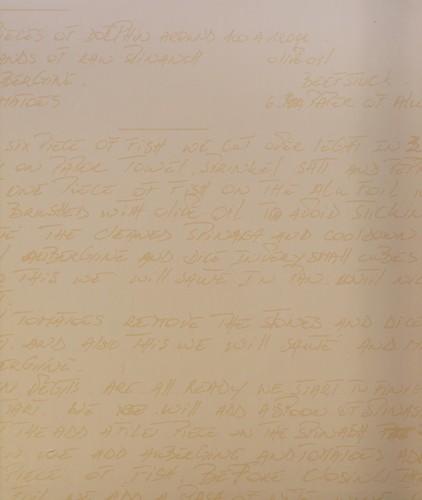 IECES OF DOLPHIN AROUND 160 A 180 GR
ANDS OF RAW SPINACH OLIVE OIL
BERGINE. BEEFSTOCK
MATOES 6 PAPER OF ALU
SIX PIECE OF FISH WE CUT OVER LEGHT IN
ON PAPER TOWEL. SPRINKEL SALT AND PEPP
ONE PIECE OF FISH ON THE ALU FOIL
BRUSHED WITH OLIVE OIL TO AVOID STICKIN
THE CLEANED SPINASH AND COOLDOWN
AUBERGINE AND DICE IN VERY SMALL CUBES
THIS WE WILL SAUTE IN PAN UNTIL NIC
TOMATOES REMOVE THE STONES AND DICE
T. AND ALSO THIS WE WILL SAUTE AND M
BERGINE.
N DETAILS ARE ALL READY WE START TO FINISH
PART WE WILL ADD A SPOON OF SPINAS
THE ADD A FILET PIECE ON THE SPINASH
N, WE ADD AUBERGINE AND TOMATOES AD
PIECE OF FISH BEFORE CLOSING THE
WE ADD A